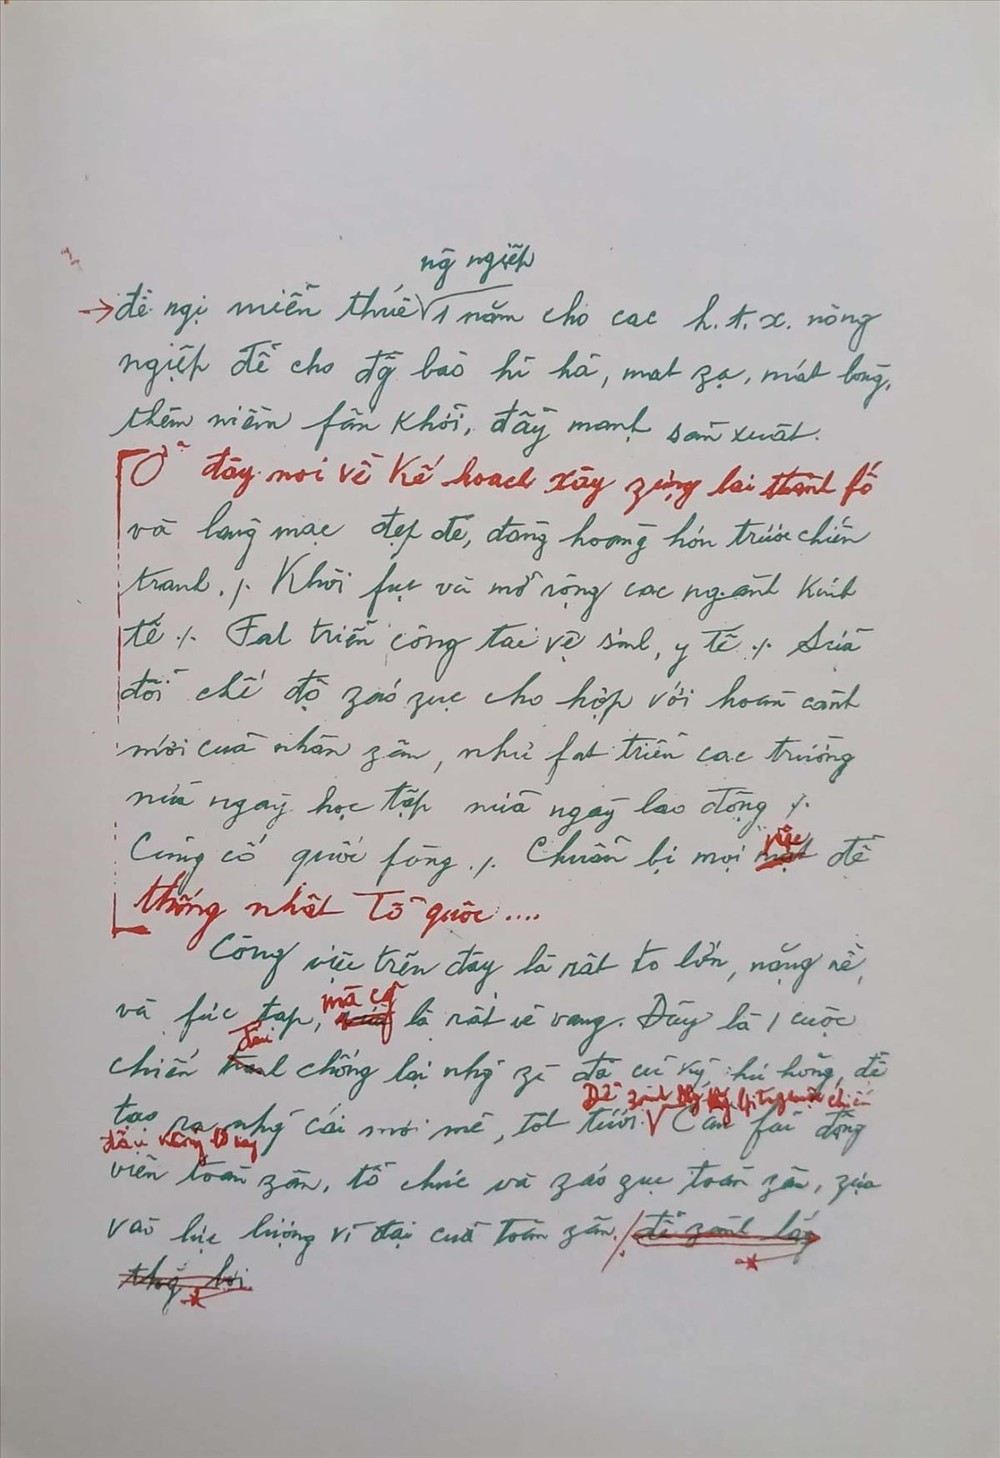 ng̃ ngiệp
→ đề ngị miễn thuế √ 1 năm cho các h.t.x. nông
ngiệp để cho đg̀ bào hỉ hả, mát zạ, mát lòng,
thêm niềm fấn khởi, đẩy mạnh sản xuất.
Ở đây nói về kế hoạch xây zựng lại thành fố
và làng mạc đẹp đẽ, đàng hoàng hơn trước chiến
tranh. /. Khôi fục và mở rộng các ngành kinh
tế /. Fát triển công tác vệ sinh, y tế /. Sửa
đổi chế độ záo zục cho hợp với hoàn cảnh
mới của nhân zân, như fát triển các trường
nửa ngày học tập nửa ngày lao động /.
Củng cố quốc fòng. /. Chuẩn bị mọi mặt để
việc
thống nhất Tổ quốc ....
Công việc trên đây là rất to lớn, nặng nề,
mà cg̃
và fức tạp, là rất vẻ vang. Đây là 1 cuộc
đấu
chiến tranh chống lại nhg̃ zì đã cũ kỹ, hư hỏng, để
Để zành lấy thắng lợi trong cuộc chiến
tạo ra nhg̃ cái mới mẻ, tốt tươi. √ Cần fải động
đấu khổng lồ này
viên toàn zân, tổ chức và záo zục toàn zân, zựa
vào lực lượng vĩ đại của toàn zân. / để zành lấy
thắg lợi.